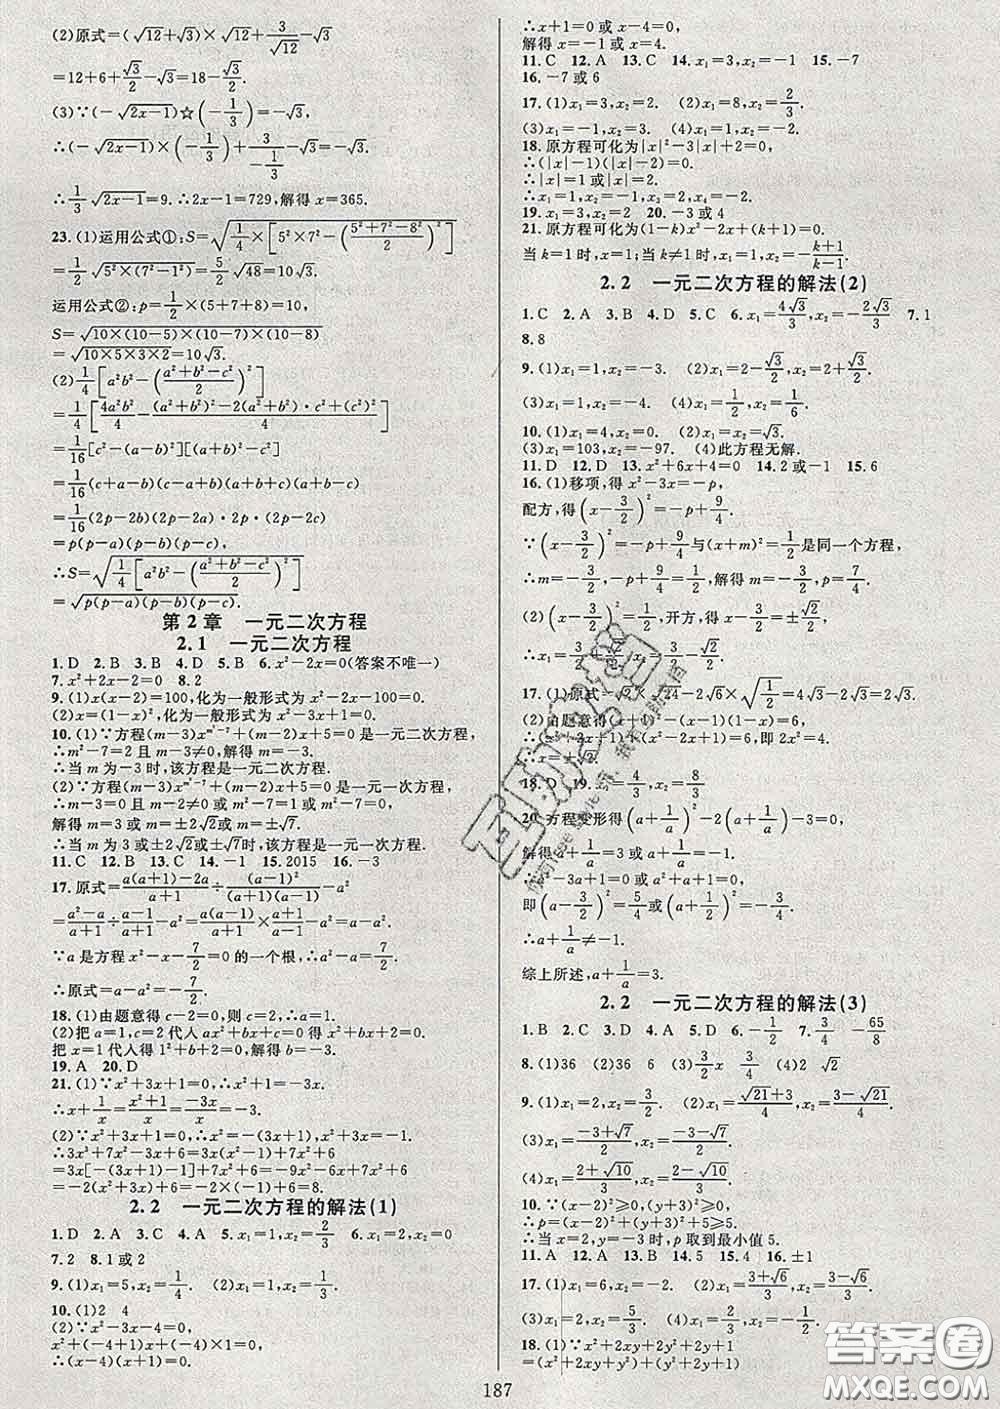 (2)原式=(√12+√3)×√12+3/√12-√3
=12+6+√3/2-√3=18-√3/2.
(3)∵(-√(2x-1))☆(-1/3)=-√3,
∴(-√(2x-1))×(-1/3)+3/(-1/3)-√3=-√3.
∴1/3√(2x-1)=9.∴2x-1=729,解得 x=365.
23.(1)运用公式①:S=√(1/4×[5²×7²-((5²+7²-8²)/2)²])
=1/2√(5²(7²-1²))=5/2√48=10√3.
运用公式②:p=1/2×(5+7+8)=10,
S=√(10×(10-5)×(10-7)×(10-8))
=√(10×5×3×2)=10√3.
(2)1/4[a²b²-((a²+b²-c²)/2)²]
=1/4[4a²b²/4-((a²+b²)²-2(a²+b²)·c²+(c²)²)/4]
=1/16[c²-(a-b)²][(a+b)²-c²]
=1/16(c+a-b)(c-a+b)(a+b+c)(a+b-c)
=1/16(2p-2b)(2p-2a)·2p·(2p-2c)
=p(p-a)(p-b)(p-c),
∴S=√(1/4[a²b²-((a²+b²-c²)/2)²])
=√(p(p-a)(p-b)(p-c)).
第2章 一元二次方程
2.1 一元二次方程
1.D 2.B 3.B 4.D 5.B 6.x²-2x=0(答案不唯一)
7.x²+2x-2=0 8.2
9.(1)x(x-2)=100,化为一般形式为 x²-2x-100=0.
(2)x=(1-x)²,化为一般形式为 x²-3x+1=0.
10.(1)∵方程(m-3)x^(m²-7)+(m-2)x+5=0 是一元二次方程,
∴m²-7=2 且 m-3≠0,解得 m=-3.
∴当 m 为-3时,该方程是一元二次方程.
(2)∵方程(m-3)x^(m²-7)+(m-2)x+5=0 是一元一次方程,
∴m-3=0 且 m-2≠0 或 m²-7=1 或 m²-7=0.
解得 m=3 或 m=±2√2或 m=±√7.
∴当 m 为 3 或±2√2或±√7时,该方程是一元一次方程.
11.C 12.B 13.C 14.-1 15.2015 16.-3
17.原式=(a(a+1)-2a)/(a+1)÷(a-1)²/((a+1)(a-1))-a²
=(a²-a)/(a+1)÷(a-1)/(a+1)-a²=a(a-1)/(a+1)×(a+1)/(a-1)-a²=a-a².
∵a是方程 x²-x-7/2=0 的一个根,∴a²-a=7/2.
∴原式=a-a²=-7/2.
18.(1)由题意可得 c-2=0,则 c=2,∴a=1.
(2)把 a=1,c=2代人 ax²+bx+c=0 得 x²+bx+2=0,
把 x=1代人得 1²+b+2=0,解得 b=-3.
19.A 20.D
21.(1)∵x²+3x+1=0,∴x²+1=-3x.
∴x+1/x=(x²+1)/x=-3x/x=-3.
(2)∵x²+3x+1=0,∴x²=-3x-1,x²+3x=-1.
∴3x³+7x²-3x+6=3x(-3x-1)+7x²-3x+6
=3x[-(3x+1)-1]+7x²+6=-9x²-6x+7x²+6
=-2x²-6x+6=-2(x²+3x)+6=8.
2.2 一元二次方程的解法(1)
1.D 2.A 3.C 4.A 5.x₁=1,x₂=2/3 6.x₁=2,x₂=0
7.2 8.1或 2
9.(1)x₁=5,x₂=1/4. (2)x₁=1,x₂=1/4.
10.(1)2 4
(2)∵x★(-4)=0,
x²+(-4+1)x+(-4)×1=0,
∴(x-4)(x+1)=0.
∴x+1=0或 x-4=0,
解得 x=-1或 x=4.
11.C 12.A 13.C 14.x₁=3,x₂=-1 15.-7
16.-7或 6
17.(1)x₁=3,x₂=2. (2)x₁=8,x₂=2/3.
(3)x₁=-1,x₂=3. (4)x₁=-1,x₂=2.
18.原方程可化为|x|²-3|x|+2=0,
∴(|x|-1)(|x|-2)=0.
∴|x|=1或|x|=2.
∴x₁=1,x₂=-1,x₃=2,x₄=-2.
19.x₁=3,x₂=2 20.-3或 4
21.原方程可化为(1-k)x²-2x+(k+1)=0.
当 k=1时,x=1;当 k≠1时,x₁=1,x₂=-(k+1)/(k-1).
2.2 一元二次方程的解法(2)
1.C 2.A 3.B 4.D 5.C 6.x₁=4√3/3,x₂=-2√3/3 7.1
8.8
9.(1)x₁=1,x₂=-3. (2)x₁=2-√3/2,x₂=2+√3/2.
(3)x₁=1,x₂=-4. (4)x₁=1/2,x₂=1/6.
10.(1)x₁=4,x₂=0. (2)x₁=x₂=√3.
(3)x₁=103,x₂=-97. (4)此方程无解.
11.D 12.D 13.x²+6x+4=0 14.2或-1 15.6
16.(1)移项,得 x²-3x=-p,
配方,得(x-3/2)²=-p+9/4.
∵(x-3/2)²=-p+9/4与(x+m)²=1/2是同一个方程,
∴m=-3/2,-p+9/4=1/2,解得 m=-3/2,p=7/4.
(2)(x-3/2)²=1/2,开方,得 x-3/2=±√2/2.
∴x₁=3/2+√2/2,x₂=3/2-√2/2.
17.(1)原式=√2×√24-2√6×√(1/2)=4√3-2√3=2√3.
(2)由题意得(x+1)²-(1-x)(x-1)=6,
=6,即 2x²=4.
∴x=±√2.
18.D 19.
20.方程变形得(a+1/a)²-2(a+1/a)-3=0,
解得a+1/a=3或 a+1/a=-1.
∴a²-3a+1=0或 a²+a+1=0,
即(a-3/2)²=5/4或(a+1/2)²=-3/4.
∴a+1/a≠-1.
综上所述,a+1/a=3.
2.2 一元二次方程的解法(3)
1.B 2.C 3.D 4.A 5.D 6.-1/2 7.3/4 -65/8
8.(1)36 (2)36 6 (3)3/2 3/4 (4)2 √2
9.(1)x₁=2,x₂=3/2. (2)x₁=(√21+3)/4,x₂=(3-√21)/4.
(3)x₁=(-3+√7)/2,x₂=(-3-√7)/2.
(4)x₁=(2+√10)/3,x₂=(2-√10)/3.
10.∵(x-2)²≥0,(y+3)²≥0,
∴p=(x-2)²+(y+3)²+5≥5.
∴当 x=2,y=-3时,p取到最小值 5.
11.A 12.A 13.B 14.5 15.4 16.±1
17.(1)x₁=6,x₂=-2. (2)x₁=(3+√6)/3,x₂=(3-√6)/3.
(3)x₁=2,x₂=5/3. (4)x₁=2,x₂=3/2.
18.(1)∵x²+2xy+2y²+2y+1
=(x²+2xy+y²)+(y²+2y+1)
187
答案圈
MXQE.COM